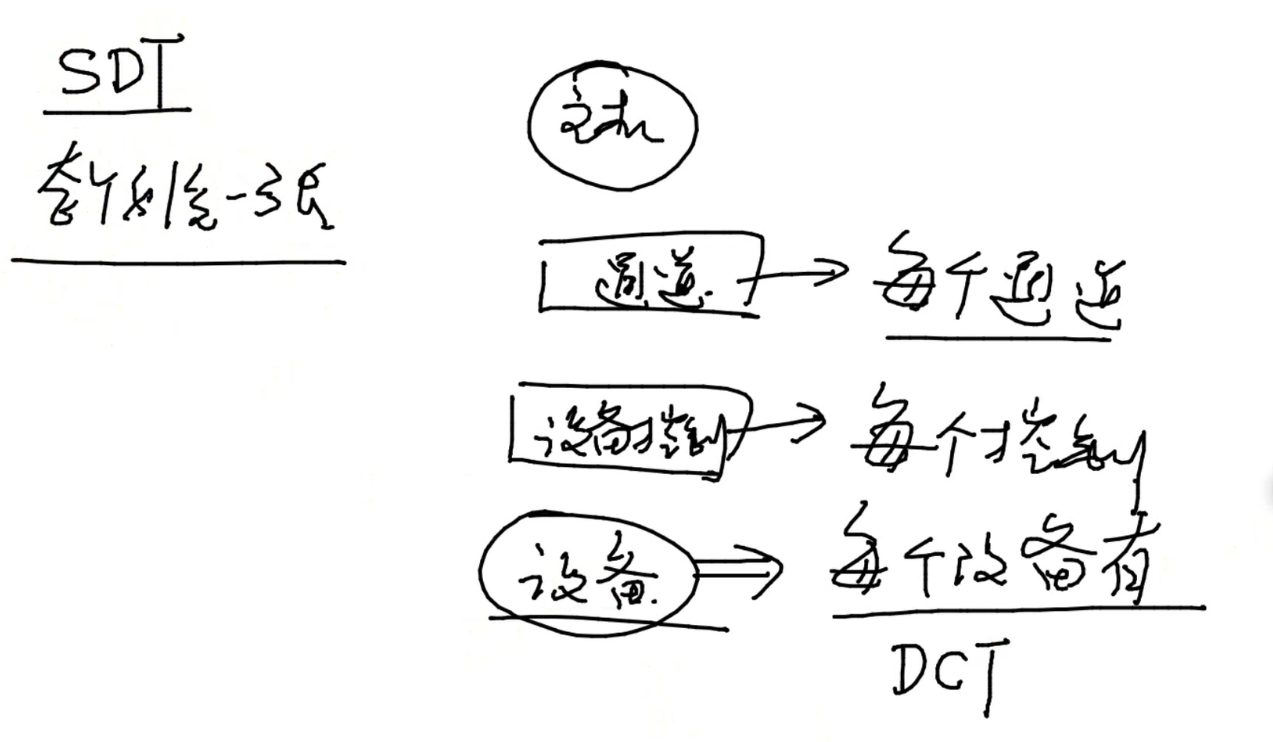 SDT
整个系统一张
主机
通道
每个通道
设备控制
每个控制
设备
每个设备有
DCT